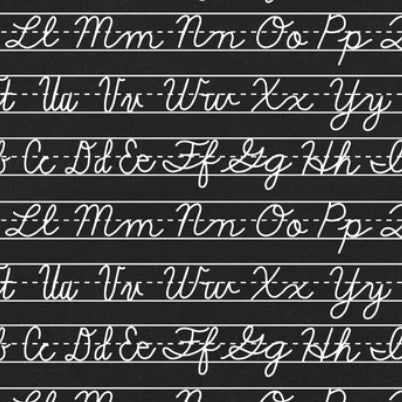 Ll Mm Nn Oo Pp
t Uu Vv Ww Xx Yy
b Cc Dd Ee Ff Gg Hh
Ll Mm Nn Oo Pp
t Uu Vv Ww Xx Yy
b Cc Dd Ee Ff Gg Hh